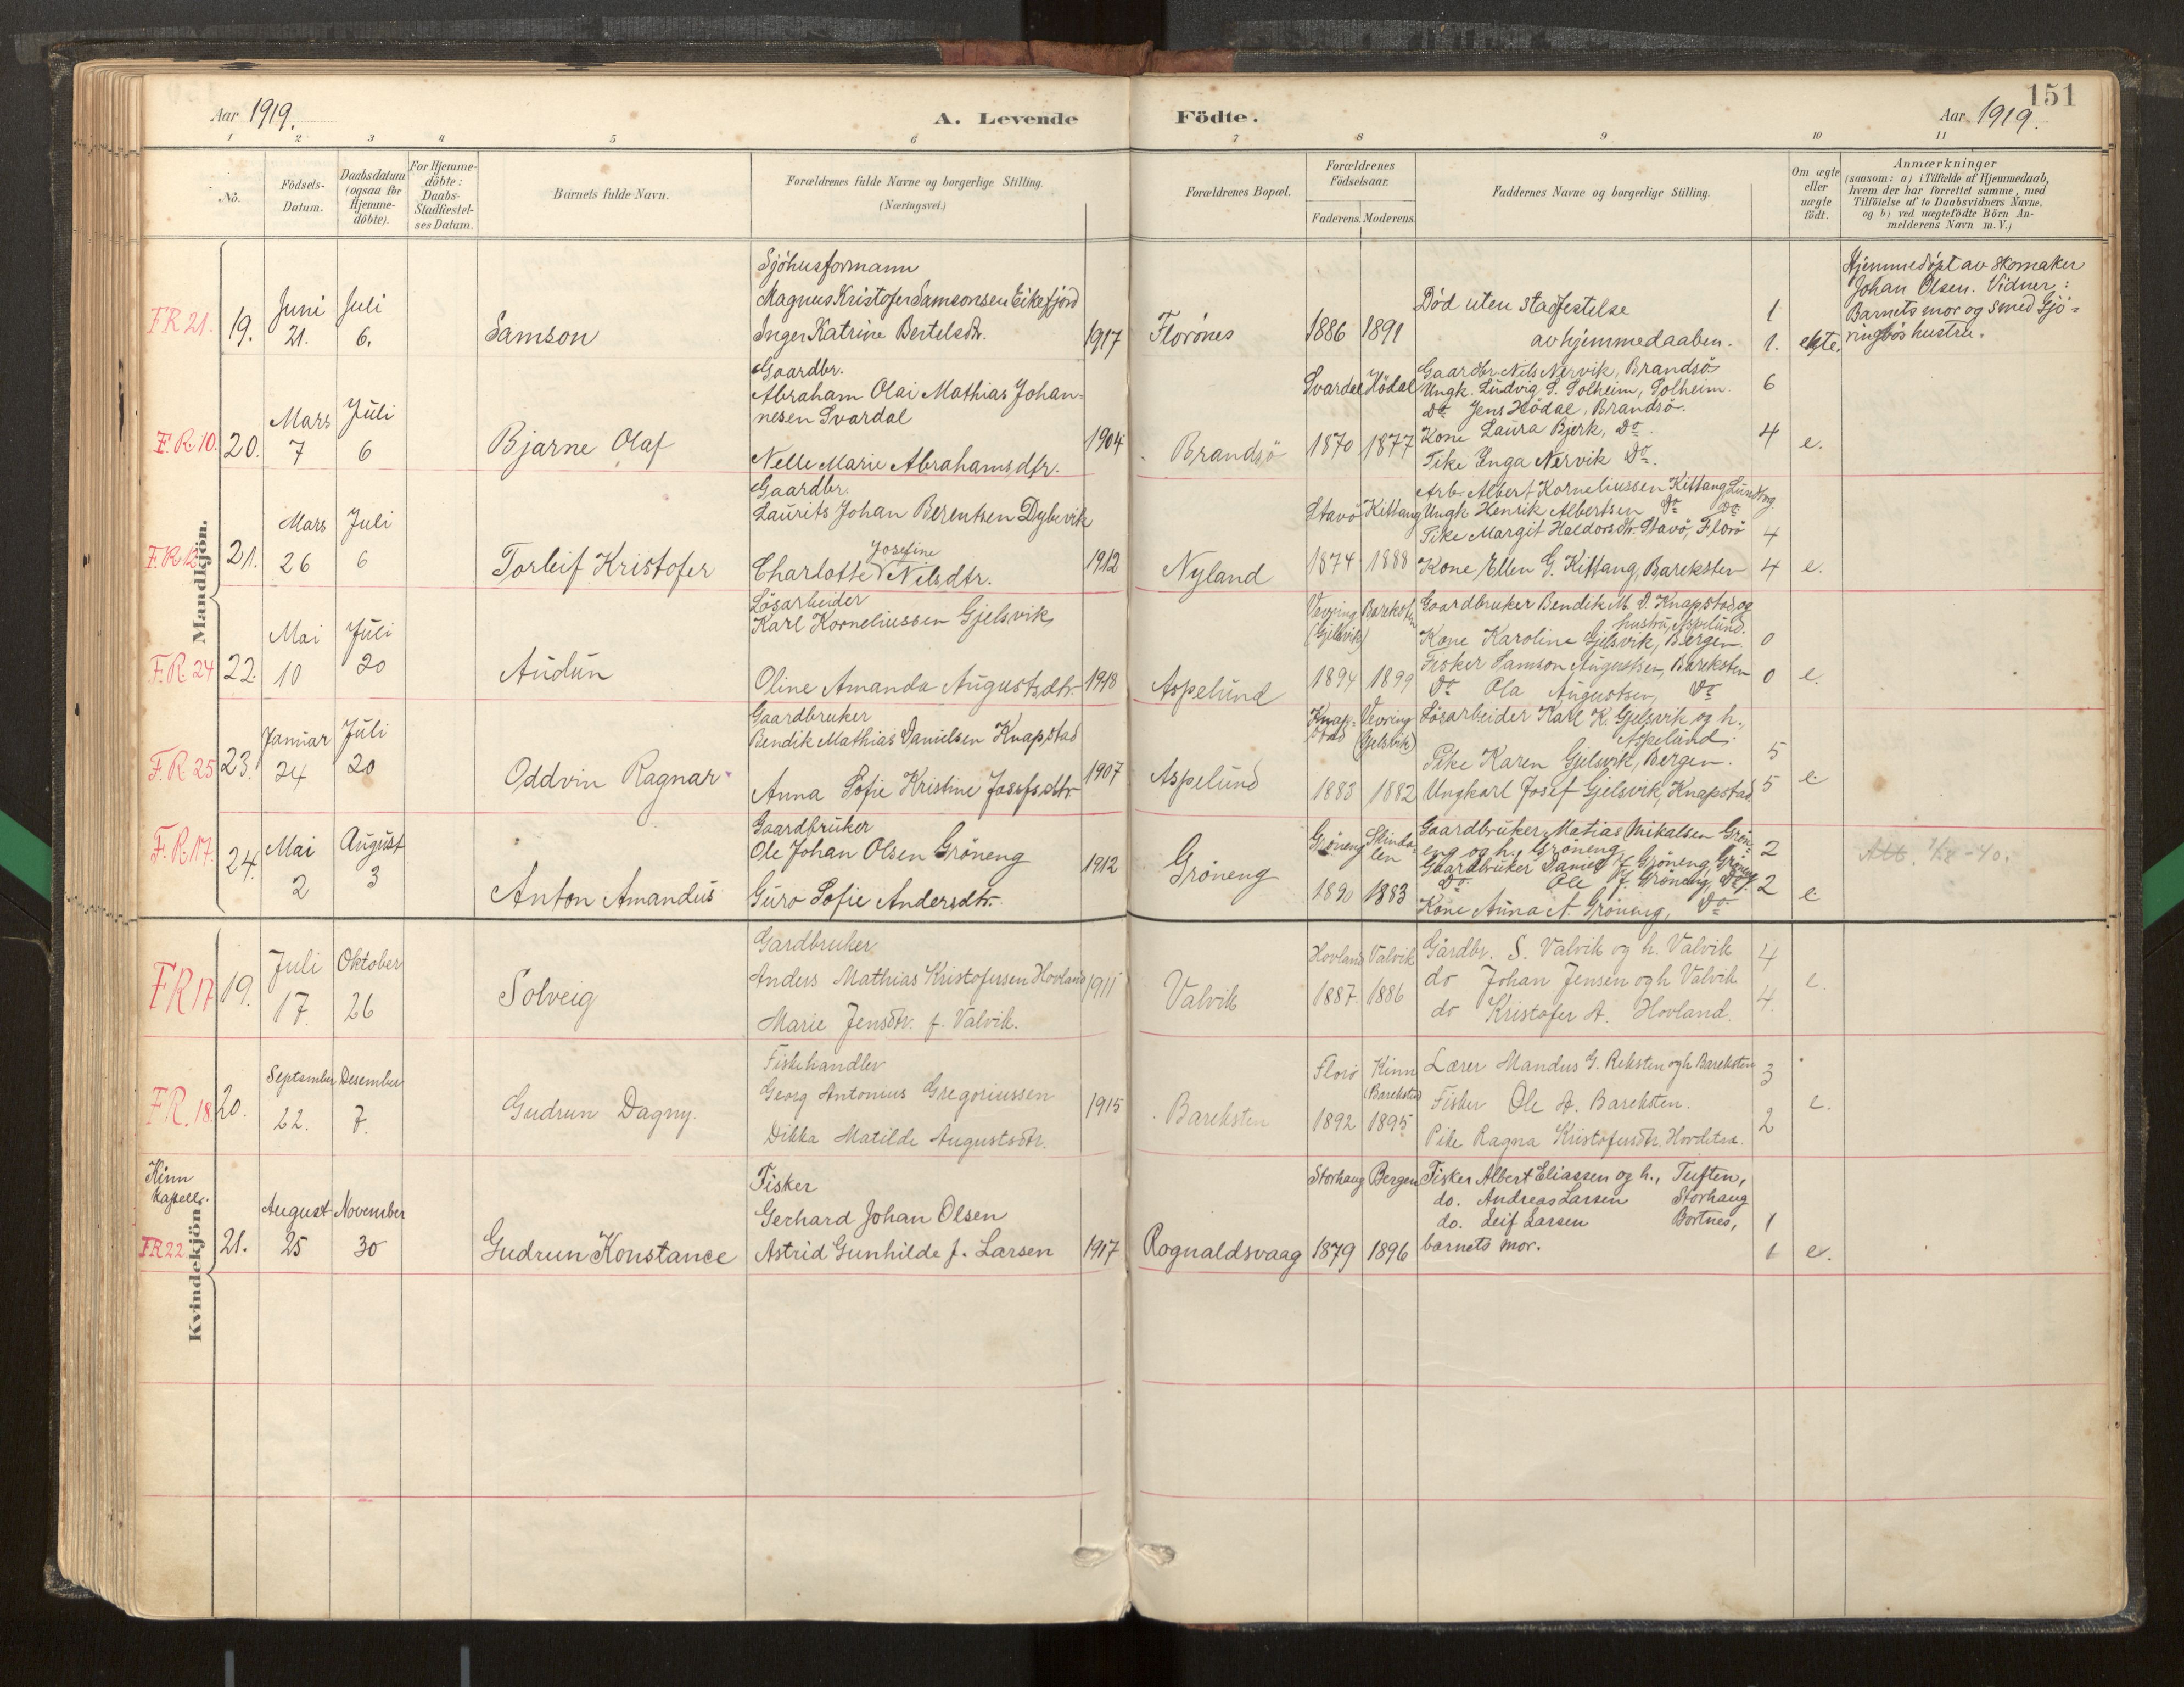 151
Aar 1919.
A. Levende Födte.
Aar 1919.
1 2 3 4 5 6 7 8 9 10 11
No.
Födsels-Datum.
Daabsdatum (ogsaa for Hjemme-döbte).
For Hjemme-döbte: Daabs-Stadfæstel-ses Datum.
Barnets fulde Navn.
Forældrenes fulde Navne og borgerlige Stilling.
(Næringsvei.)
Forældrenes Bopæl.
Forældrenes Födselsaar.
Faderens. Moderens.
Faddernes Navne og borgerlige Stilling.
Om ægte eller uægte födt.
Anmærkninger
(saasom: a) i Tilfælde af Hjemmedaab,
hvem der har forrettet samme, med
Tilföielse af to Daabsvidners Navne.
og b) ved uægtefödte Börn An-
melderens Navn m.V.)
Mandkjön.
FR 21. 19. Juni 21. Juli 6.
Samson
Sjöhusformann
Magnus Kristofer Samsonsen Eikefjord
Inger Katrine Bertelsdtr. 1917
Florönes
1886 1891
Död uten stadfestelse 1
av hjemmedaaben. 1.
ekte.
Hjemmedöpt av skomaker
Johan Olsen. Vidner:
Barnets mor og smed Gjö-
ringbös hustru.
F.R. 10. 20. Mars 7 Juli 6
Bjarne Olaf
Gaardbr.
Abraham Olai Mathias Johan-
nesen Svardal
Nelle Marie Abrahamsdtr. 1904
Brandsö
Svardal Hödal
1870 1877
Gaardbr. Nils Nervik, Brandsö
Ungk. Ludvig S. Solheim, Solheim. 6
Do Jens Hödal, Brandsö.
Kone Laura Bjerk, Do. 4
Pike Inga Nervik Do.
e.
F.R. 12 21. Mars 26 Juli 6
Torleif Kristofer
Gaardbr.
Laurits Johan Berentsen Dybevik
Josefine
Charlotte Nilsdtr. 1912
Nyland
Stavö Kittang
1874 1888
Arb. Albert Korneliussen Kittang
Ungk Henrik Albertsen Do Do
Pike Margit Haldorsdtr. Stavö, Florö 4
Kone Ellen G. Kittang, Bareksten 4
e.
F.R. 24 22. Mai 10 Juli 20
Audun
Lösarbeider
Karl Korneliussen Gjelsvik
Oline Amanda Augustsdtr. 1918
Aspelund
Vevring (Gjelsvik)
1894 1899
Gaardbruker Bendik M. D. Knapstad og
hustru, Aspelund.
Kone Karoline Gjelsvik, Bergen. 0
Fisker Samson Augustsen, Bareksten
Do Ola Augustsen, Do 0
e.
F.R. 25 23. Januar 24 Juli 20
Oddvin Ragnar
Gaardbruker
Bendik Mathias Danielsen Knapstad
Anna Sofie Kristine Josefsdtr 1907
Aspelund
Knap-stad Vevring (Gjelsvik)
1883 1882
Lösarbeider Karl K. Gjelsvik og h.,
Aspelund.
Pike Karen Gjelsvik, Bergen. 5
Ungkarl Josef Gjelsvik, Knapstad 5
e
F.R. 17. 24. Mai 2 August 3
Anton Amandus
Gaardbruker
Ole Johan Olsen Gröneng 1912
Guro Sofie Andersdtr.
Gröneng
Gröneng
1890 1883
Gaardbruker Matias Mikalsen Grön-
eng og h., Gröneng 2
Gaardbruker Daniel J. Gröneng, Gröneng
Do Ole J. Gröneng, Do 2
Kone Anna A. Gröneng, Do
e
Att. 1/8-40.
Kvindekjön.
FR 17 19. Juli 17. Oktober 26
Solveig
Gardbruker
Anders Mathias Kristofersen Hovland 1911
Marie Jensdtr. f. Valvik.
Valvik
Hovland Valvik
1887. 1886
Gårdbr. S. Valvik og h. Valvik 4
do Johan Jensen og h Valvik
do Kristofer A. Hovland. 4.
e.
FR. 18. 20. September 22. Desember 7.
Gudrun Dagny.
Fiskehandler
Georg Antonius Gregoriussen 1915
Dikka Matilde Augustsdtr.
Bareksten
Florö Kinn (Bareksten)
1892 1895
Lærer Mandus G. Reksten og h Bareksten 3
Fisker Ole A. Bareksten.
Pike Ragna Kristofersdtr. 2
e.
Kinn kapell.
FR 22 21. August 25 November 30
Gudrun Konstance
Fisker
Gerhard Johan Olsen
Astrid Gunhilde f. Larsen 1917
Rognaldsvaag
Storhaug Bergen
1879 1896
Fisker Albert Eliassen og h., Tuften,
do. Andreas Larsen Storhaug
do. Leif Larsen Bortnes, 1
barnets mor. 1
e.